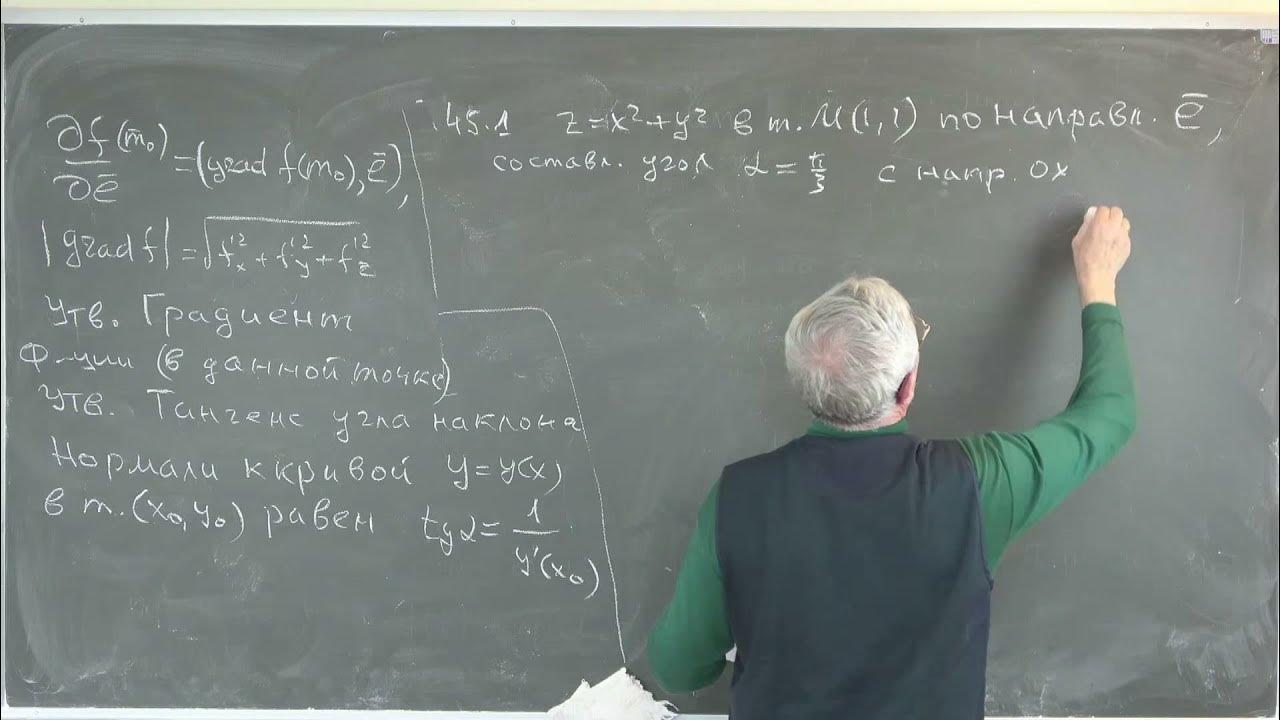 ∂f(m₀)/∂ē = (grad f(m₀), ē),
|grad f| = √(f'²ₓ + f'²ᵧ + f'²_z)
Утв. Градиент
Ф-ции (в данной точке)
Утв. Тангенс угла наклона
Нормали к кривой y = y(x)
в т. (x₀, y₀) равен tgα = 1/y'(x₀)
45.1 z = x² + y² в т. M(1,1) по направл. ē,
составл. угол α = π/3 с напр. OX